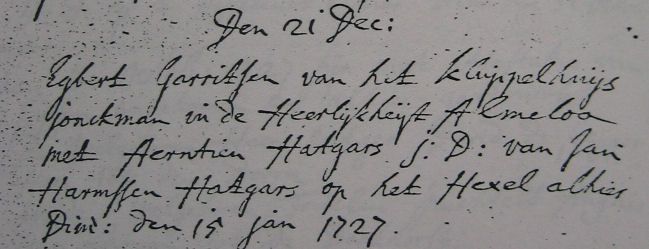 Den 21 Dec:
Egbert Garritsen van het Kluppelhuijs
jonckman in de Heerlijkheijt Almeloa
met Aerntien Hatgars j: D: van Jan
Harmssen Hatgars op het Hexel alhier
Dim: den 15 jan 1727.